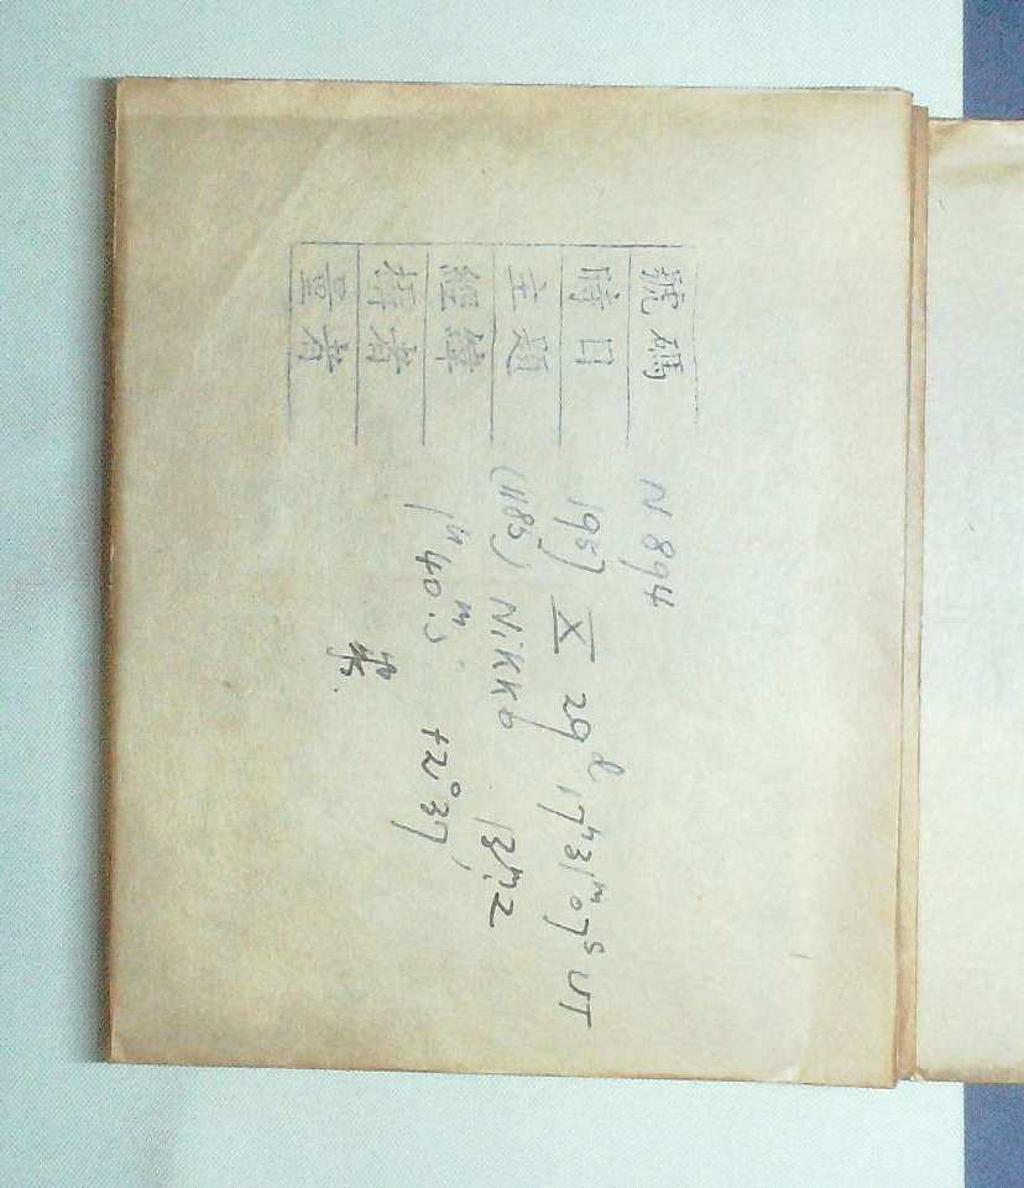 號碼 N 894
時日 1957 X 29ᵈ 17ʰ31ᵐ07ˢ UT
主題 (1185) Nikko 13ᵐ.2
經緯 1ʰ 40ᵐ.5 +2°37′
攝者
量者